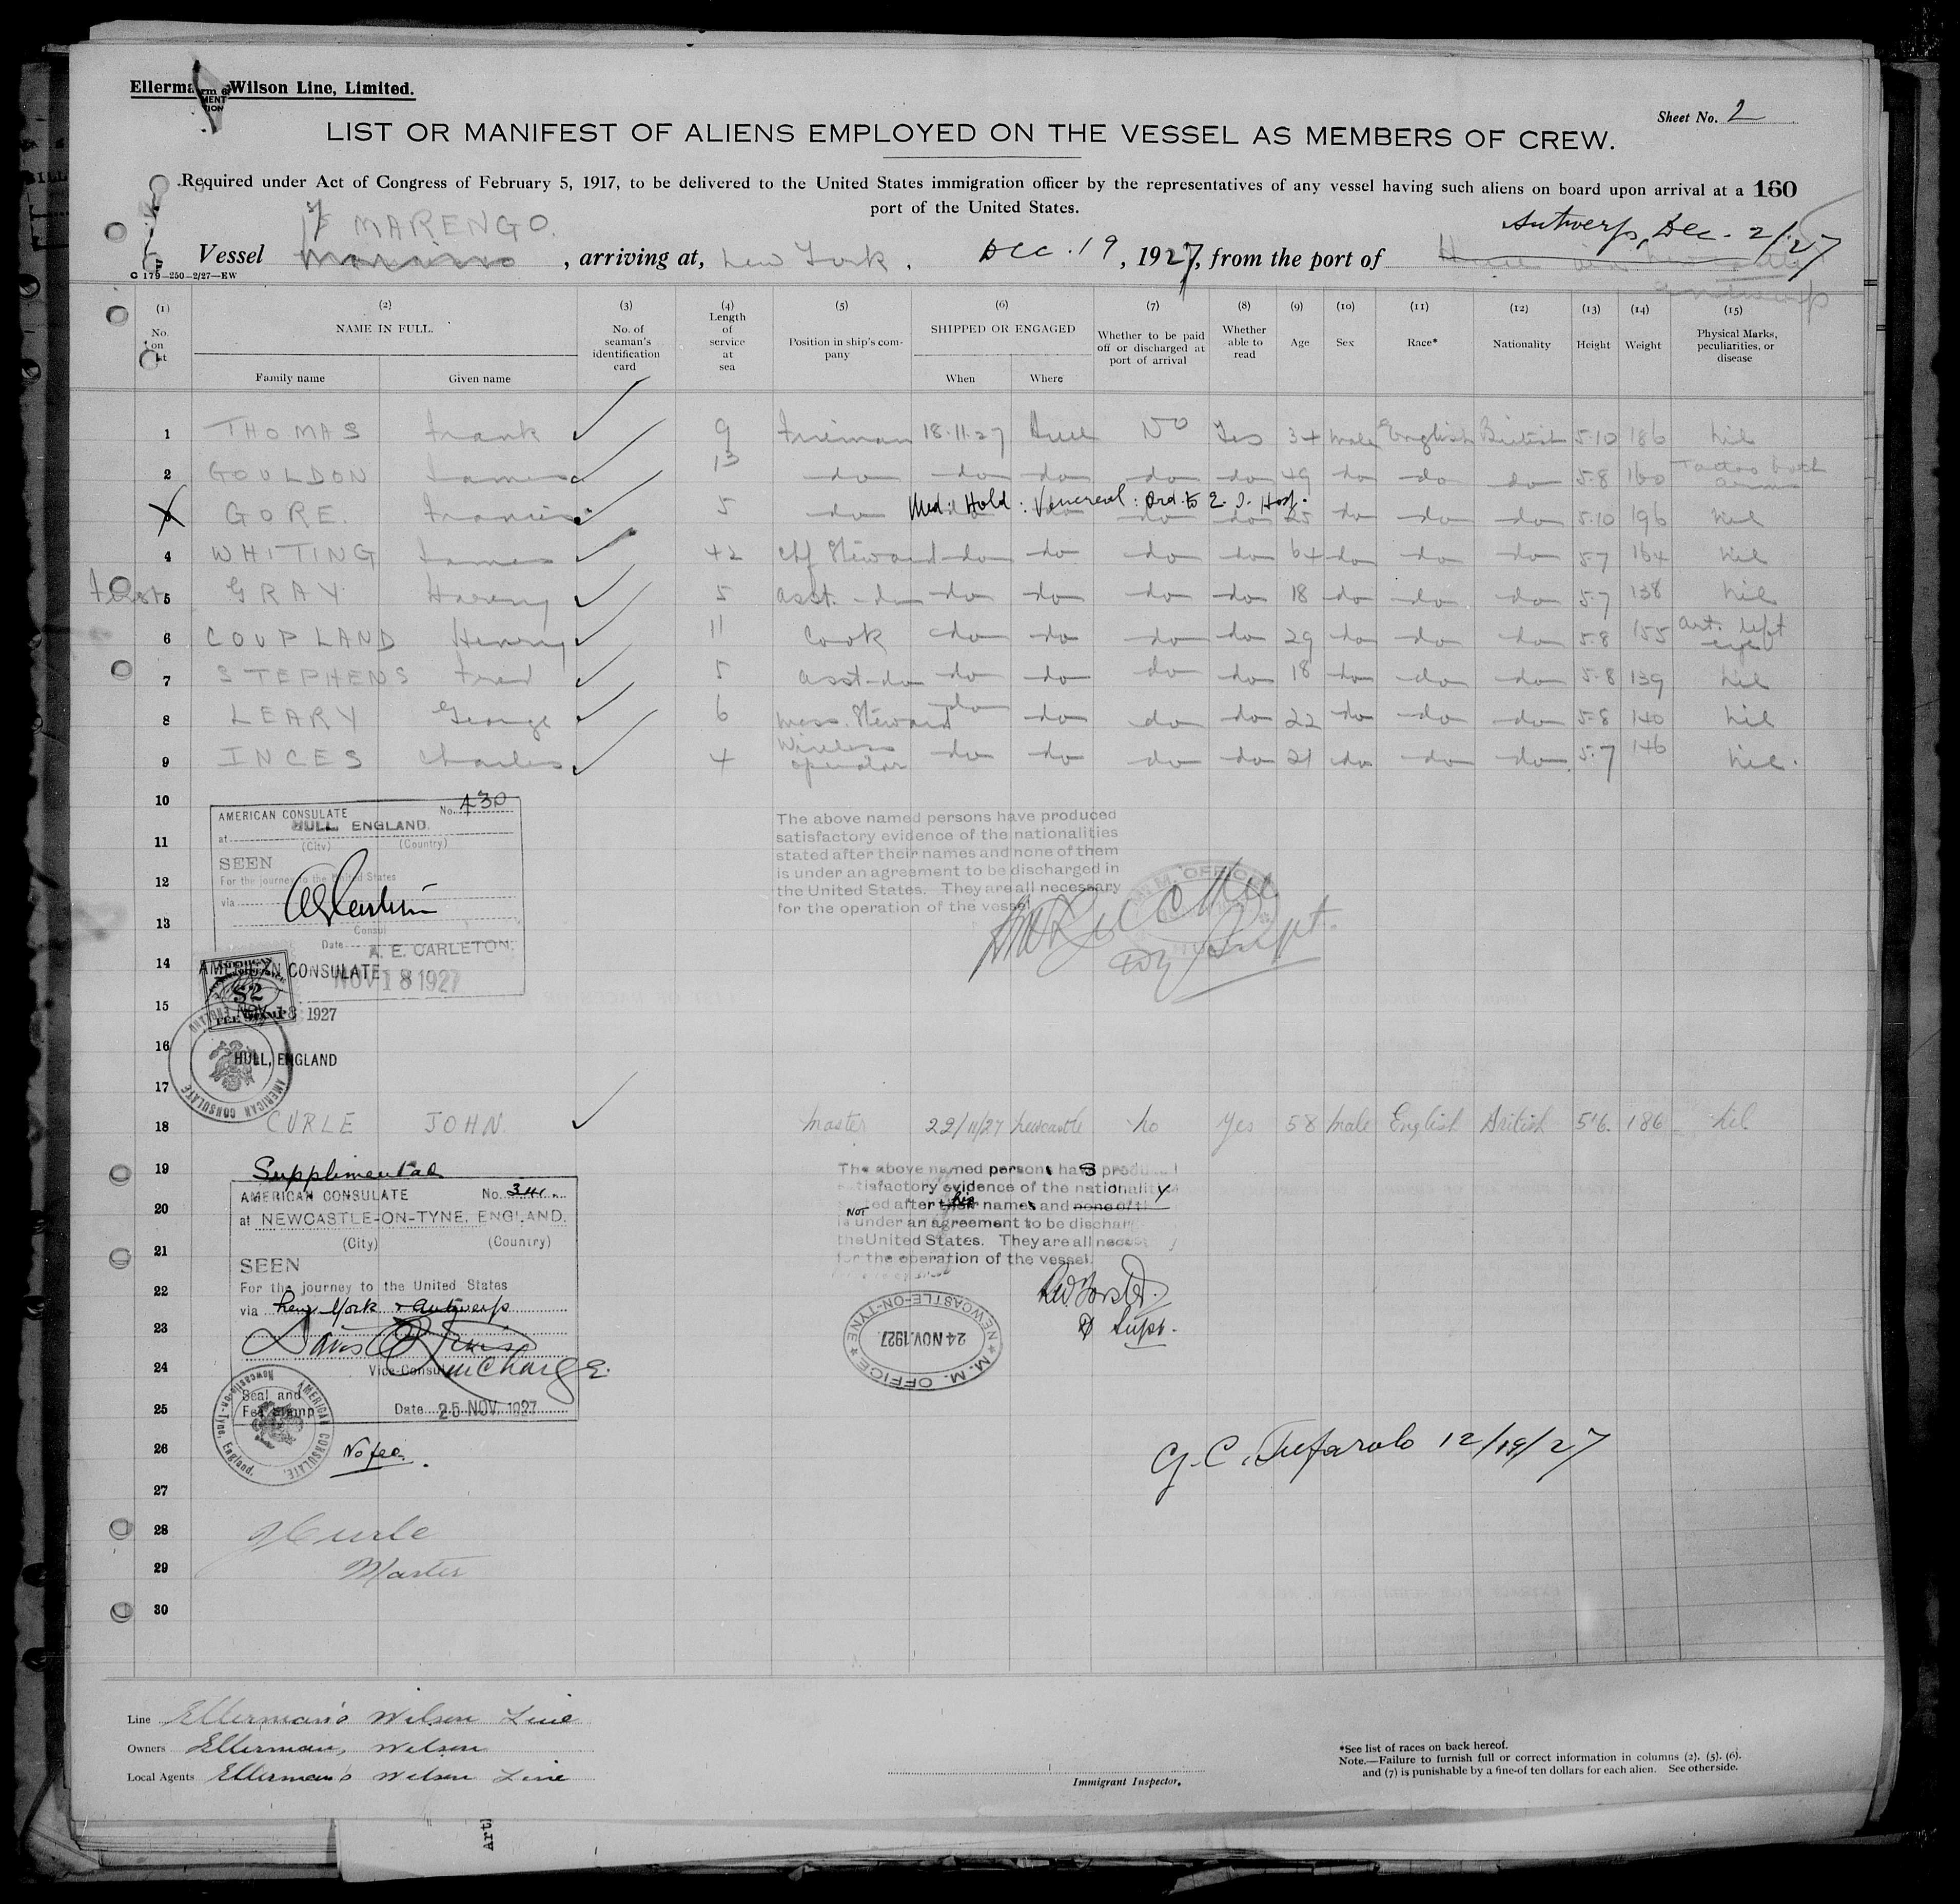 Ellerma Wilson Line, Limited.
Sheet No. 2
LIST OR MANIFEST OF ALIENS EMPLOYED ON THE VESSEL AS MEMBERS OF CREW.
Required under Act of Congress of February 5, 1917, to be delivered to the United States immigration officer by the representatives of any vessel having such aliens on board upon arrival at a 160
port of the United States.
MARENGO.
Antwerp, Dec. 2/27
Vessel , arriving at, New York, Dec. 19, 1927, from the port of
Antwerp
G 179—250—2/27—EW
(1) (2) (3) (4) (5) (6) (7) (8) (9) (10) (11) (12) (13) (14) (15)
No. on NAME IN FULL. Family name Given name No. of seaman's identification card Length of service at sea Position in ship's company SHIPPED OR ENGAGED When Where Whether to be paid off or discharged at port of arrival Whether able to read Age Sex Race* Nationality Height Weight Physical Marks, peculiarities, or disease
1 THOMAS Frank 9 Fireman 18.11.27 Hull No Yes 34 Male English British 5-10 186 Nil
2 GOULDON James 13 do do do do do 49 do do do 5-8 160 Tattoo both arms
Med. Hold: Venereal: Ord. to E. I. Hosp.
3 GORE. Francis 5 do do do do do 25 do do do 5-10 196 Nil
4 WHITING James 42 Chf Steward do do do do 64 do do do 5-7 164 Nil
5 GRAY Harry 5 Asst. do do do do do 18 do do do 5-7 138 Nil
6 COUPLAND Henry 11 Cook do do do do 29 do do do 5-8 155 Art. left eye
7 STEPHENS Fred 5 Asst do do do do do 18 do do do 5-8 139 Nil
8 LEARY George 6 Mess. Steward do do do do 22 do do do 5-8 140 Nil
9 INCES Charles 4 Wireless operator do do do do 21 do do do 5-7 146 Nil.
10
11
12
13
14
15
16
17
AMERICAN CONSULATE No. 430
at HULL ENGLAND.
(City) (Country)
SEEN
For the journey to the United States
via
Consul
Date A. E. CARLETON.
AMERICAN CONSULATE
NOV 18 1927
$2
NOV 18 1927
HULL, ENGLAND
AMERICAN CONSULATE
The above named persons have produced
satisfactory evidence of the nationalities
stated after their names and none of them
is under an agreement to be discharged in
the United States. They are all necessary
for the operation of the vessel
M. M. OFFICE
Dy Supt.
18 CURLE JOHN. Master 22/11/27 Newcastle No Yes 58 Male English British 5'6. 186 Nil
19
20
21
22
23
24
25
26
27
28
29
30
Supplimental
AMERICAN CONSULATE No. 341
at NEWCASTLE-ON-TYNE, ENGLAND.
(City) (Country)
SEEN
For the journey to the United States
via New York & Antwerp
Vice-Consul in Charge.
Seal and
Fee Stamp
Date 25 NOV. 1927
AMERICAN CONSULATE, Newcastle-on-Tyne, England.
No fee.
The above named person has produ
satisfactory evidence of the nationality
ed after his name and none of t
NOT
is under an agreement to be discharg
the United States. They are all neces
for the operation of the vessel
D Supt.
NEWCASTLE-ON-TYNE
24 NOV. 1927
M. M. OFFICE
12/19/27
J Curle
Master
Line Ellerman's Wilson Line
Owners Ellerman, Wilson
Local Agents Ellerman's Wilson Line
Immigrant Inspector.
*See list of races on back hereof.
Note.—Failure to furnish full or correct information in columns (2). (5). (6).
and (7) is punishable by a fine of ten dollars for each alien. See other side.